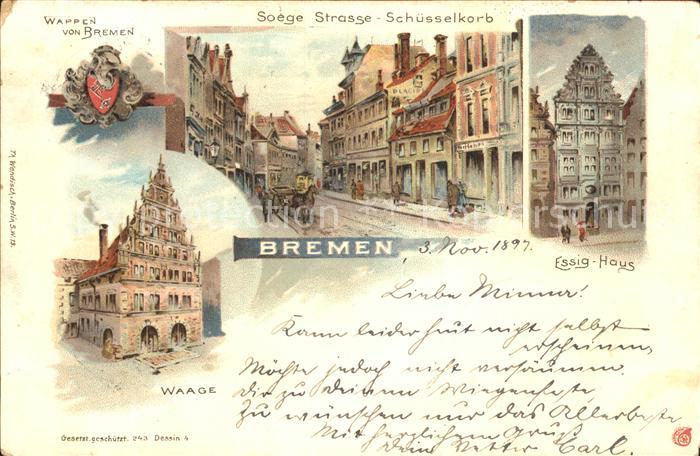 WAPPEN
VON BREMEN
Soège Strasse - Schüsselkorb
PLACIR
Th. Wendisch-Berlin S.W. 13.
BREMEN, 3. Nov. 1897.
ESSIG-HAUS
Liebe Minna!
Kann leider heut nicht selbst
erscheinen,
Möchte jedoch nicht versäumen
dir zu deinem Wiegenfeste
Zu wünschen nur das Allerbeste
Mit herzlichem Gruß
dein Vetter Carl.
WAAGE
Gesetzt. geschützt. 243 Dessin 4